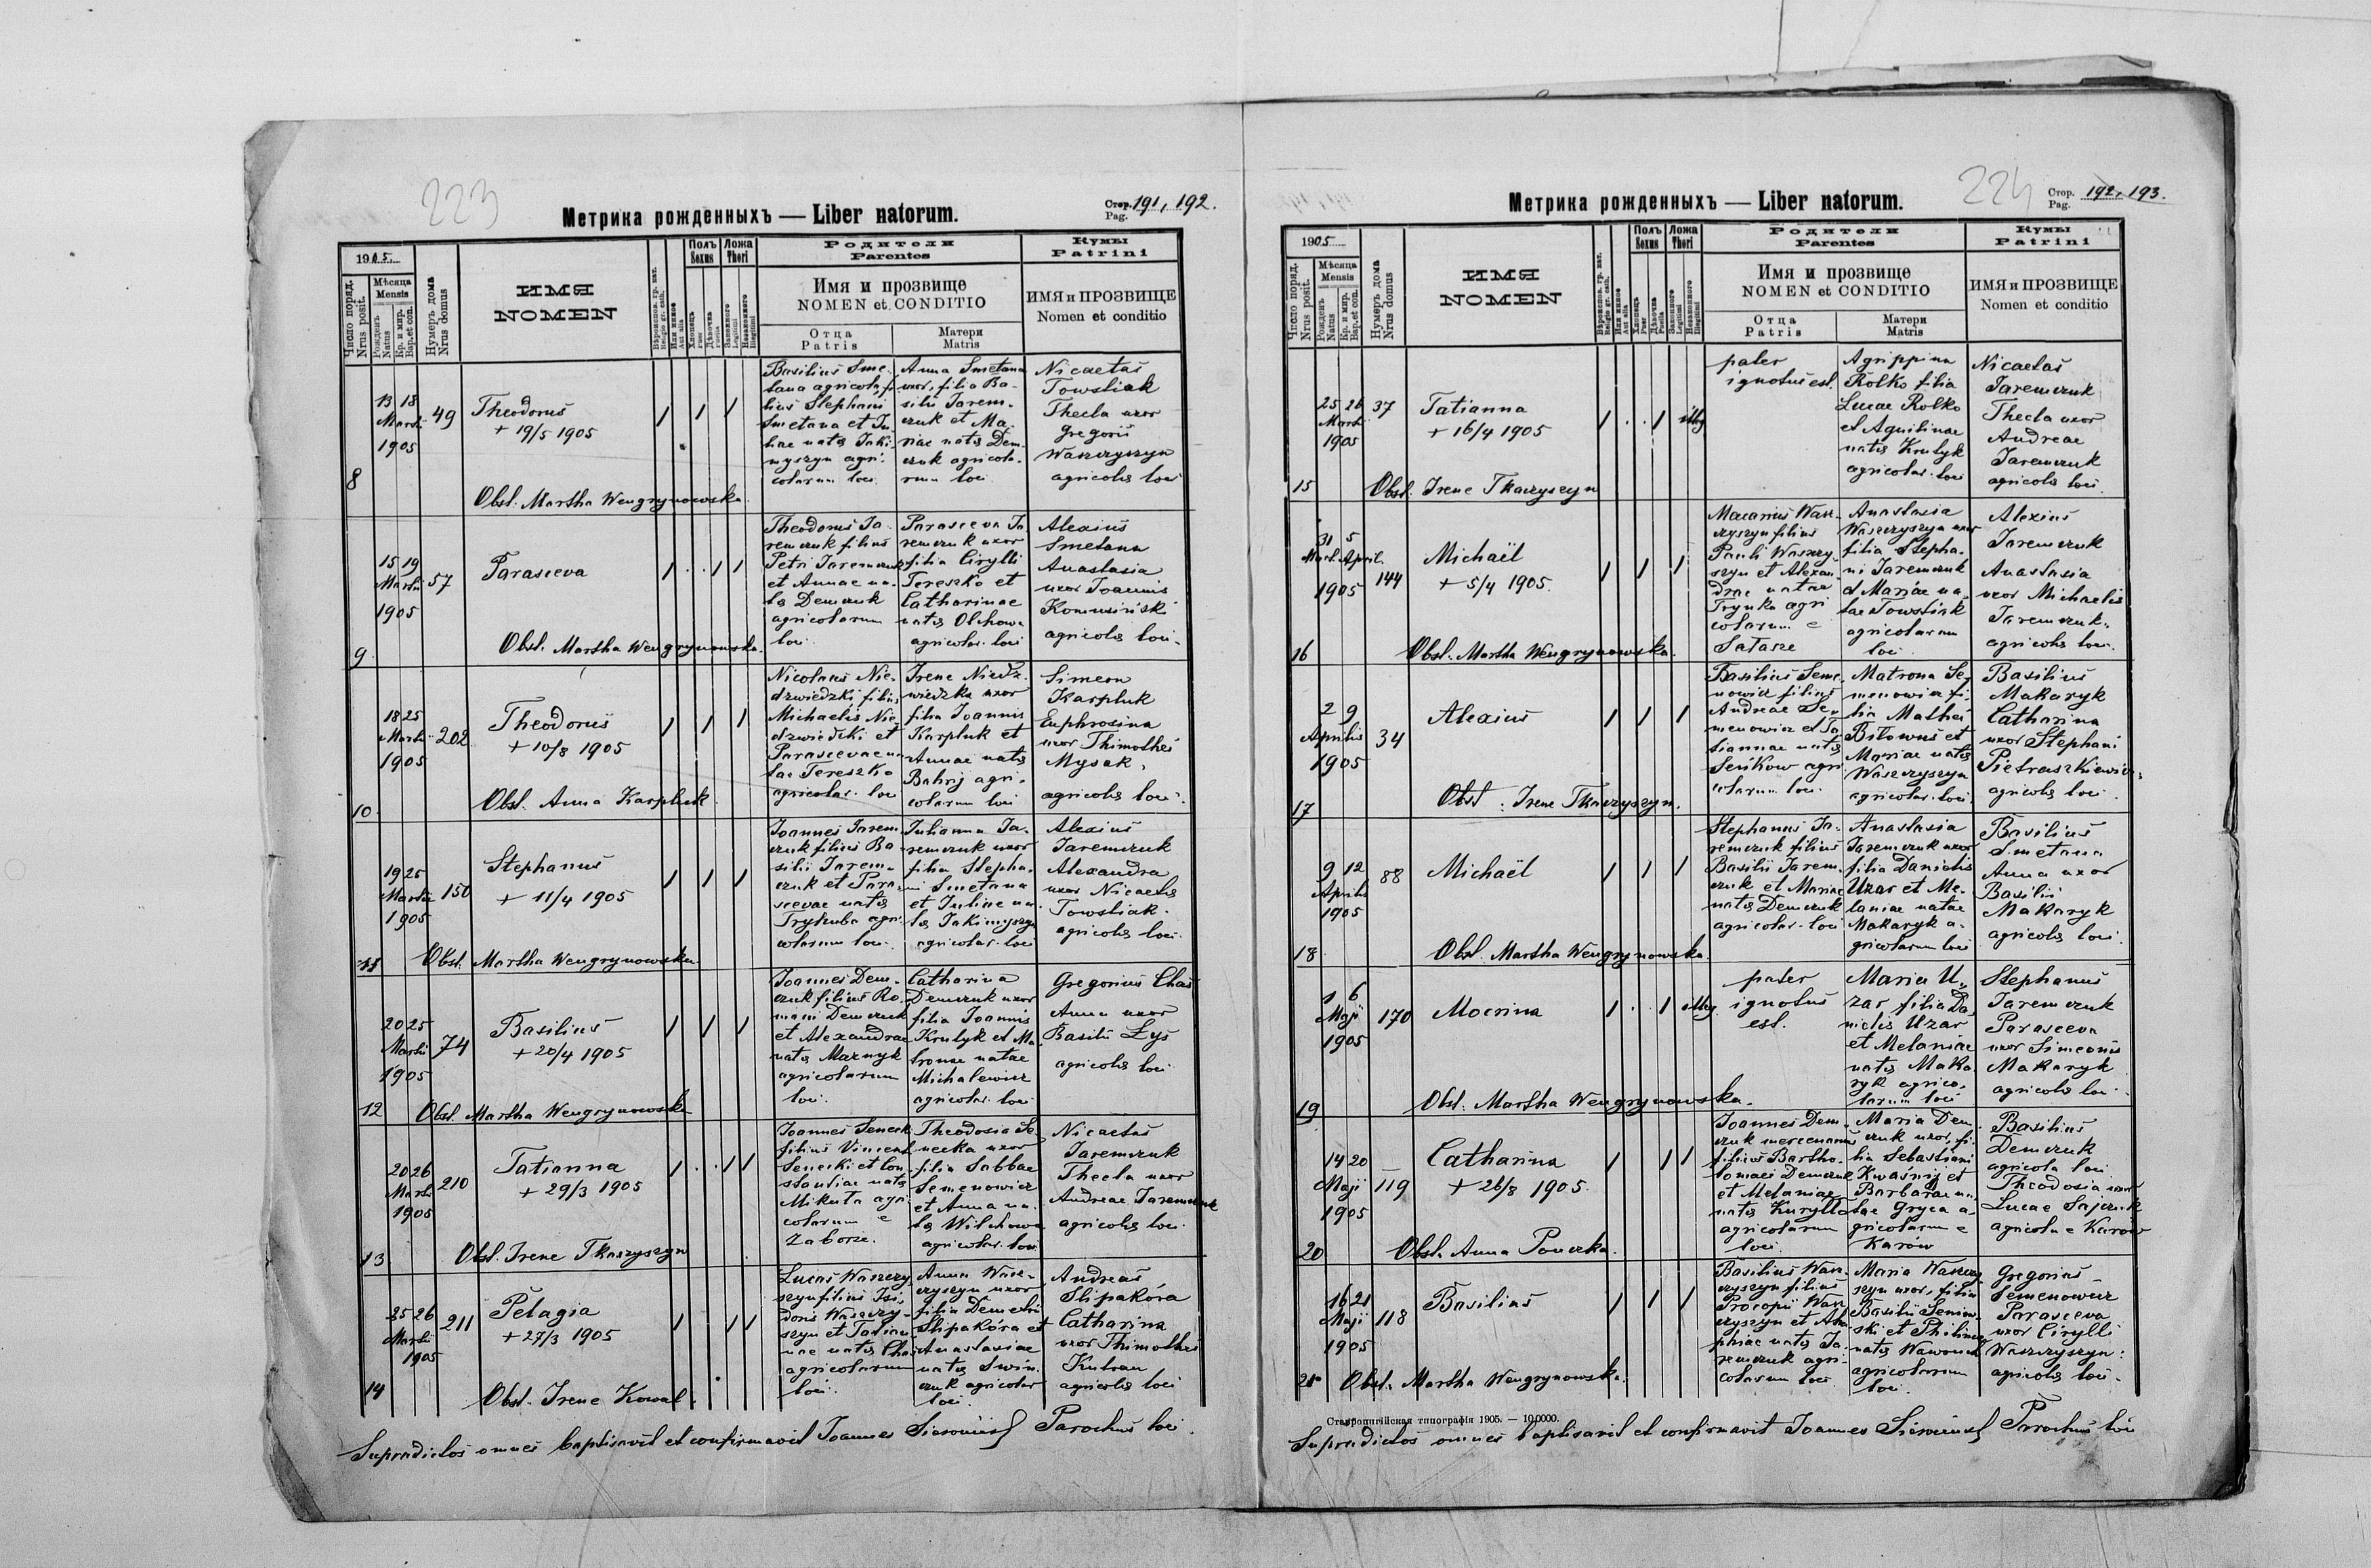 223
Метрика рожденныхъ — Liber natorum.
Стор. Pag. 191, 192.
1905
Число поряд. Nrus posit.
Мѣсяца Mensis
Рожденъ Natus
Кр. и мир. Bap. et con.
Нумеръ дома Nrus domus
ИМЯ
NOMEN
Вѣроисповѣд. гр. кат. Religio gr. cath.
Или инное Aut alia
Полъ Sexus
Хлопецъ Puer
Дѣвочка Puella
Ложа Thori
Законного Legitimi
Незаконного Illegitimi
Родители
Parentes
Имя и прозвище
NOMEN et CONDITIO
Отца Patris
Матери Matris
Кумы
Patrini
ИМЯ и ПРОЗВИЩЕ
Nomen et conditio
8
13 18
Martii
1905
49
Theodorus
+ 19/5 1905
Obst. Martha Wengrynowska
Basilius Sme-
tana agricola, fi-
lius Stephani
Smetana et Ju-
liae natis Jaki-
myszyn agri-
colarum loci.
Anna Smetana
uxor, filia Ba-
silii Jarem-
czuk et Ma-
riae natis Dem-
czuk agricola-
rum loci.
Nicaetas
Towstiak
Thecla uxor
Gregorii
Waszczyszyn
agricolis loci
9
15 19
Martii
1905
57
Parasceva
Obst. Martha Wengrynowska.
Theodorus Ja-
remczuk filius
Petri Jaremczuk
et Annae na-
tis Demczuk
agricolarum
loci.
Parasceva Ja
remczuk uxor
filia Cirylli
Tereszko et
Catharinae
natis Olchowa
agricolar. loci
Alexius
Smetana
Anastasia
uxor Joannis
Komusiński
agricolis loci.
10
18 25
Martii
1905
202
Theodorus
+ 10/8 1905
Obst. Anna Karpluk
Nicolaus Nie-
dzwiedzki filius
Michaelis Nie-
dzwiedzki et
Parascevae na
tae Tereszko
agricolar. loci
Irene Niedz-
wiedzka uxor
filia Joannis
Karpluk et
Annae natis
Bahrij agri-
colarum loci
Simeon
Karpluk
Euphrosina
uxor Thimothei
Mysak,
agricolis loci.
11
19 25
Martii
1905
150
Stephanus
+ 11/4 1905
Obst. Martha Wengrynowska
Joannes Jarem-
czuk filius Ba-
silii Jarem-
czuk et Para-
scevae natis
Trykuba agri-
colarum loci.
Julianna Ja-
remczuk uxor
filia Stepha-
ni Smetana
et Juliae na-
tis Jakimyszyn
agricolar. loci
Alexius
Jaremczuk
Alexandra
uxor Nicaetis
Towstiak.
agricolis loci.
12
20 25
Martii
1905
74
Basilius
+ 20/4 1905
Obst. Martha Wengrynowska
Joannes Dem-
czuk filius Ro-
mani Demczuk
et Alexandrae
natis Maznyk
agricolarum
loci.
Catharina
Demczuk uxor
filia Joannis
Krulyk et Ma
tronae natae
Michalewicz
agricolar. loci
Gregorius Chas
Anna uxor
Basilii Łys
agricolis loci
13
20 26
Martii
1905
210
Tatianna
+ 29/3 1905
Obst. Irene Tkaczyszyn
Joannes Senecki
filius Vincent
Senecki et Con-
stantiae natis
Mikuta agri-
colarum e
Zaborze.
Theodosia Se-
necka uxor
filia Sabbae
Semenowicz
et Anna na-
tis Wilchowa
agricolar. loci
Nicaetas
Jaremczuk
Thecla uxor
Andreae Jaremczuk
agricolis loci.
14
25 26
Martii
1905
211
Pelagia
+ 27/3 1905
Obst. Irene Kowal.
Lucas Waszczy-
szyn filius Isi-
doris Waszczy-
szyn et Tatian-
nae natis Chas
agricolarum
loci.
Anna Wasz-
czyszyn uxor
filia Demetrii
Slipakóra et
Anastasiae
natis Swin-
czuk agricolar
loci.
Andreas
Slipakóra
Catharina
uxor Thimothei
Kutran
agricolis loci
Supradictos omnes baptisavit et confirmavit Joannes Parochus loci.
224
Метрика рожденныхъ — Liber natorum.
Стор. Pag. 192, 193.
1905
Число поряд. Nrus posit.
Мѣсяца Mensis
Рожденъ Natus
Кр. и мир. Bap. et con.
Нумеръ дома Nrus domus
ИМЯ
NOMEN
Вѣроисповѣд. гр. кат. Religio gr. cath.
Или инное Aut alia
Полъ Sexus
Хлопецъ Puer
Дѣвочка Puella
Ложа Thori
Законного Legitimi
Незаконного Illegitimi
Родители
Parentes
Имя и прозвище
NOMEN et CONDITIO
Отца Patris
Матери Matris
Кумы
Patrini
ИМЯ и ПРОЗВИЩЕ
Nomen et conditio
15
25 26
Martii
1905
37
Tatianna
+ 16/4 1905
illeg
Obst. Irene Tkaczyszyn
pater
ignotus est.
Agrippina
Rolko filia
Lucae Rolko
et Aquilinae
natis Krulyk
agricolar. loci
Nicaetas
Jaremczuk
Thecla uxor
Andreae
Jaremczuk
agricolis loci.
16
31 5
Mart. April.
1905
144
Michaël
+ 5/4 1905.
Obst. Martha Wengrynowska.
Macarius Wasz-
czyszyn filius
Pauli Waszczy-
szyn et Alexan-
drae natae
Trynka agri
colarum e
Satasze
Anastasia
Waszczyszyn uxor
filia Stepha-
ni Jaremczuk
et Mariae na-
tae Towstiak
agricolarum
loci.
Alexius
Jaremczuk
Anastasia
uxor Michaelis
Jaremczuk.
agricolis loci.
17
2 9
Aprilis
1905
34
Alexius
Obst. Irene Tkaczyszyn.
Basilius Seme-
nowicz filius
Andreae Se-
menowicz et Ta
tiannae natis
Seńkow agri
colarum loci.
Matrona Se-
menowicz fi-
lia Mathei
Biłowus et
Mariae natis
Waszczyszyn
agricolar. loci.
Basilius
Makaryk
Catharina
uxor Stephani
Pietraszkiewicz,
agricolis loci.
18
9 12
Aprilis
1905
88
Michaël
Obst. Martha Wengrynowska.
Stephanus Ja-
remczuk filius
Basilii Jarem-
czuk et Mariae
natis Demczuk
agricolar. loci
Anastasia
Jaremczuk uxor
filia Danielis
Uzar et Me-
laniae natae
Makaryk a-
gricolarum loci
Basilius
Smetana
Anna uxor
Basilii
Makaryk
agricolis loci.
19
1 6
Maji
1905
170
Mocrina
illeg.
Obst. Martha Wengrynowska.
pater
ignotus
est.
Maria U-
zar filia Da-
nielis Uzar
et Melaniae
natis Maka
ryk agrico-
larum loci
Stephanus
Jaremczuk
Parasceva
uxor Simeonis
Makaryk
agricolis loci.
20
14 20
Maji
1905
119
Catharina
+ 26/8 1905.
Obst. Anna Ponczka.
Joannes Dem-
czuk mercenarius
filius Bartho-
lomaei Demczuk
et Melaniae
natis Kuryllo
agricolarum
loci.
Maria Dem-
czuk uxor, fi-
lia Sebastiani
Kwaśnij et
Barbarae na-
tae Gryca a-
gricolarum e
Karów
Basilius
Demczuk
agricola loci.
Theodosia uxor
Lucae Sajczuk
agricola e Karów
21
16 21
Maji
1905
118
Basilius
Obst. Martha Wengrynowska.
Basilius Wasz-
czyszyn filius
Procopii Wasz
czyszyn et Aha
phiae natis Ja-
remczuk agri-
colarum loci
Maria Waszczy-
szyn uxor, filia
Basilii
et
natis
agricolarum
loci.
Gregorius
Semenowicz
Parasceva
uxor Cirylli
Waszczyszyn:
agricolis loci.
Ставропигійская типографія 1905. — 10.0000.
Supradictos omnes baptisavit et confirmavit Joannes Parochus loci